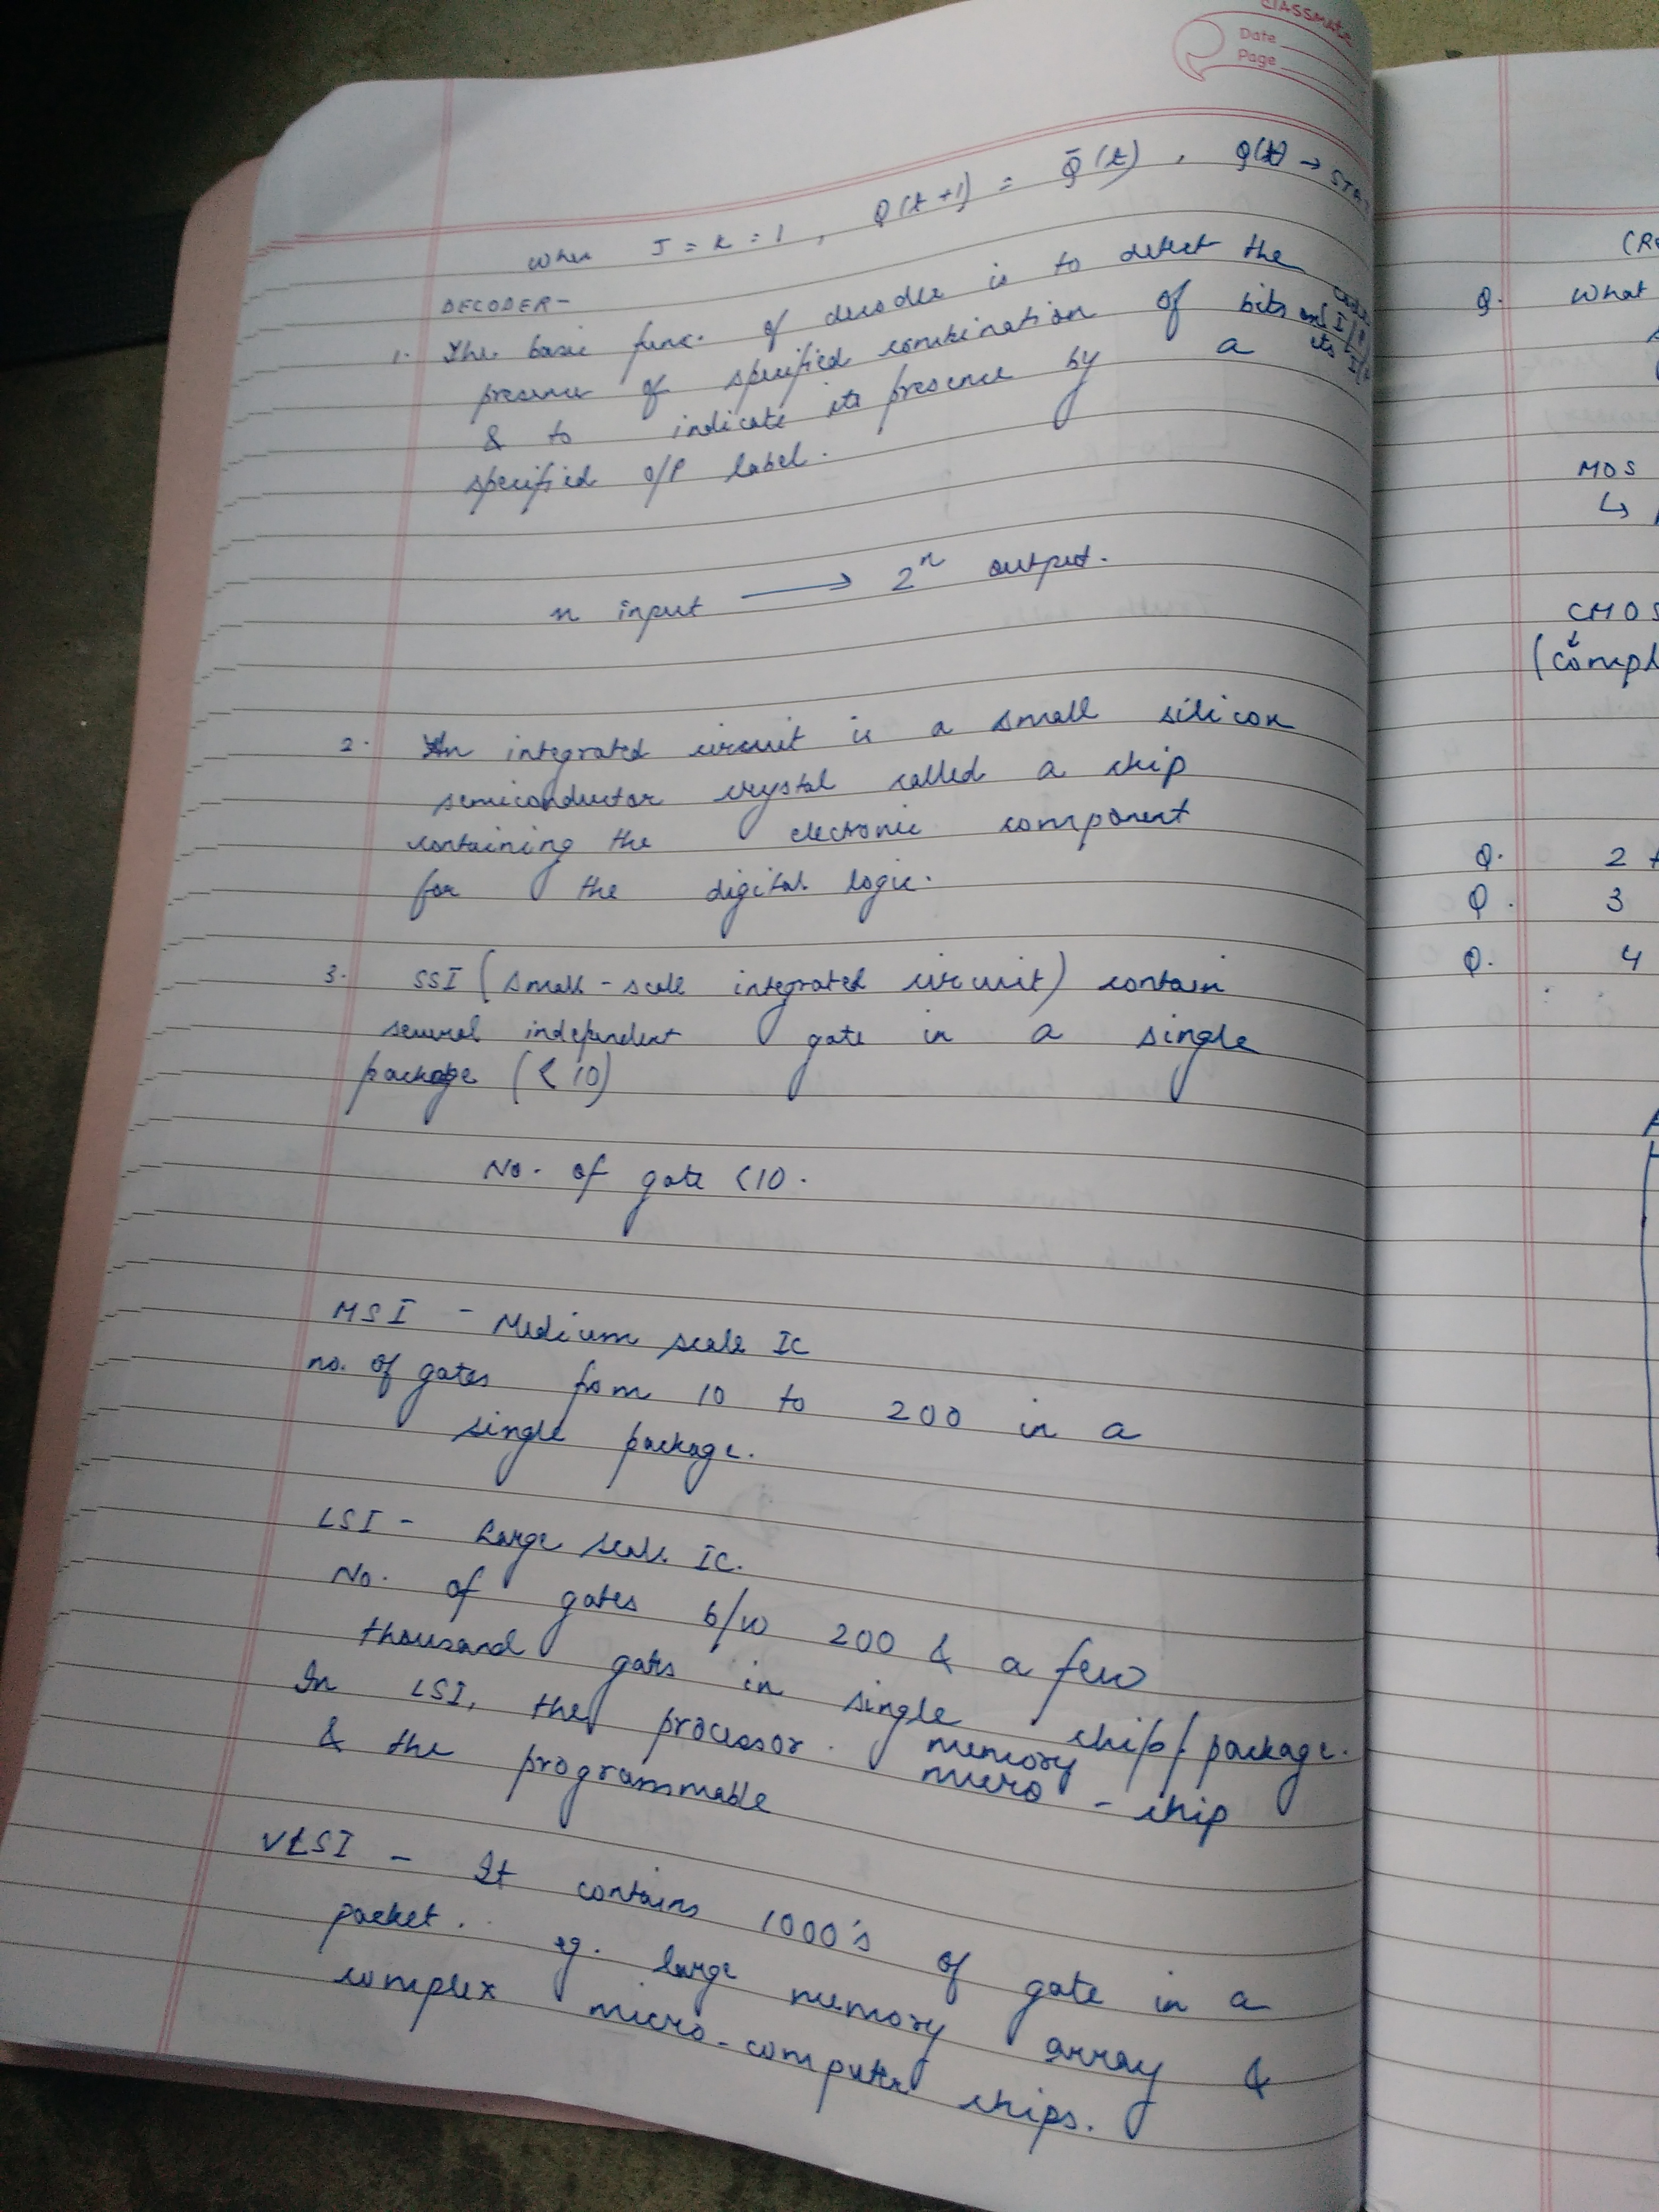 classmate
Date
Page
When J = K = 1, Q(t+1) = Q̄(t), Q(t) →
DECODER-
1. The basic func. of decoder is to detect the
presence of specified combination of bits on its I/P
& to indicate its presence by a
specified o/p label.
n input ⟶ 2ⁿ output.
2. An integrated circuit is a small silicon
semiconductor crystal called a chip
containing the electronic component
for the digital logic.
3. SSI (small-scale integrated circuit) contain
several independent gate in a single
package (<10)
No. of gate <10.
MSI - Medium scale IC
no. of gates from 10 to 200 in a
single package.
LSI - Large scale IC.
No. of gates b/w 200 & a few
thousand gates in single chip/package.
In LSI, the processor. memory
& the programmable micro-chip
VLSI - It contains 1000's of gate in a
packet. eg. large memory array &
complex micro-computer chips.
Q. What
MOS
↳
CMOS
(compl
Q. 2
Q. 3
Q. 4